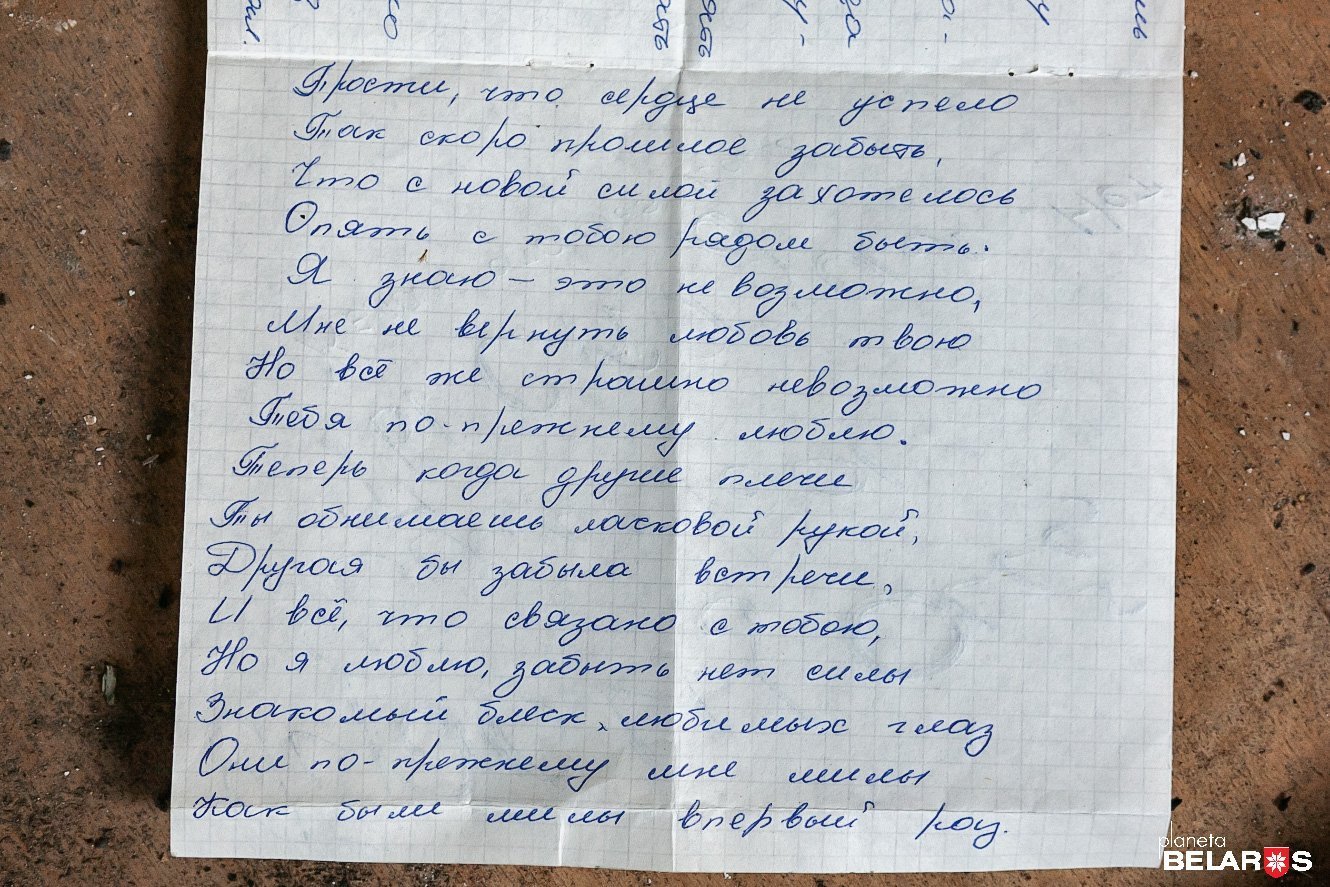 Прости, что сердце не успело
Так скоро прошлое забыть,
Что с новой силой захотелось
Опять с тобою рядом быть.
Я знаю — это невозможно,
Мне не вернуть любовь твою
Но всё же страшно невозможно
Тебя по-прежнему люблю.
Теперь когда другие плечи
Ты обнимаешь ласковой рукой,
Другая бы забыла встречи,
И всё, что связано с тобою,
Но я люблю, забыть нет силы
Знакомый блеск, любимых глаз
Они по-прежнему мне милы
Как были милы впервый раз.
planeta
BELARUS